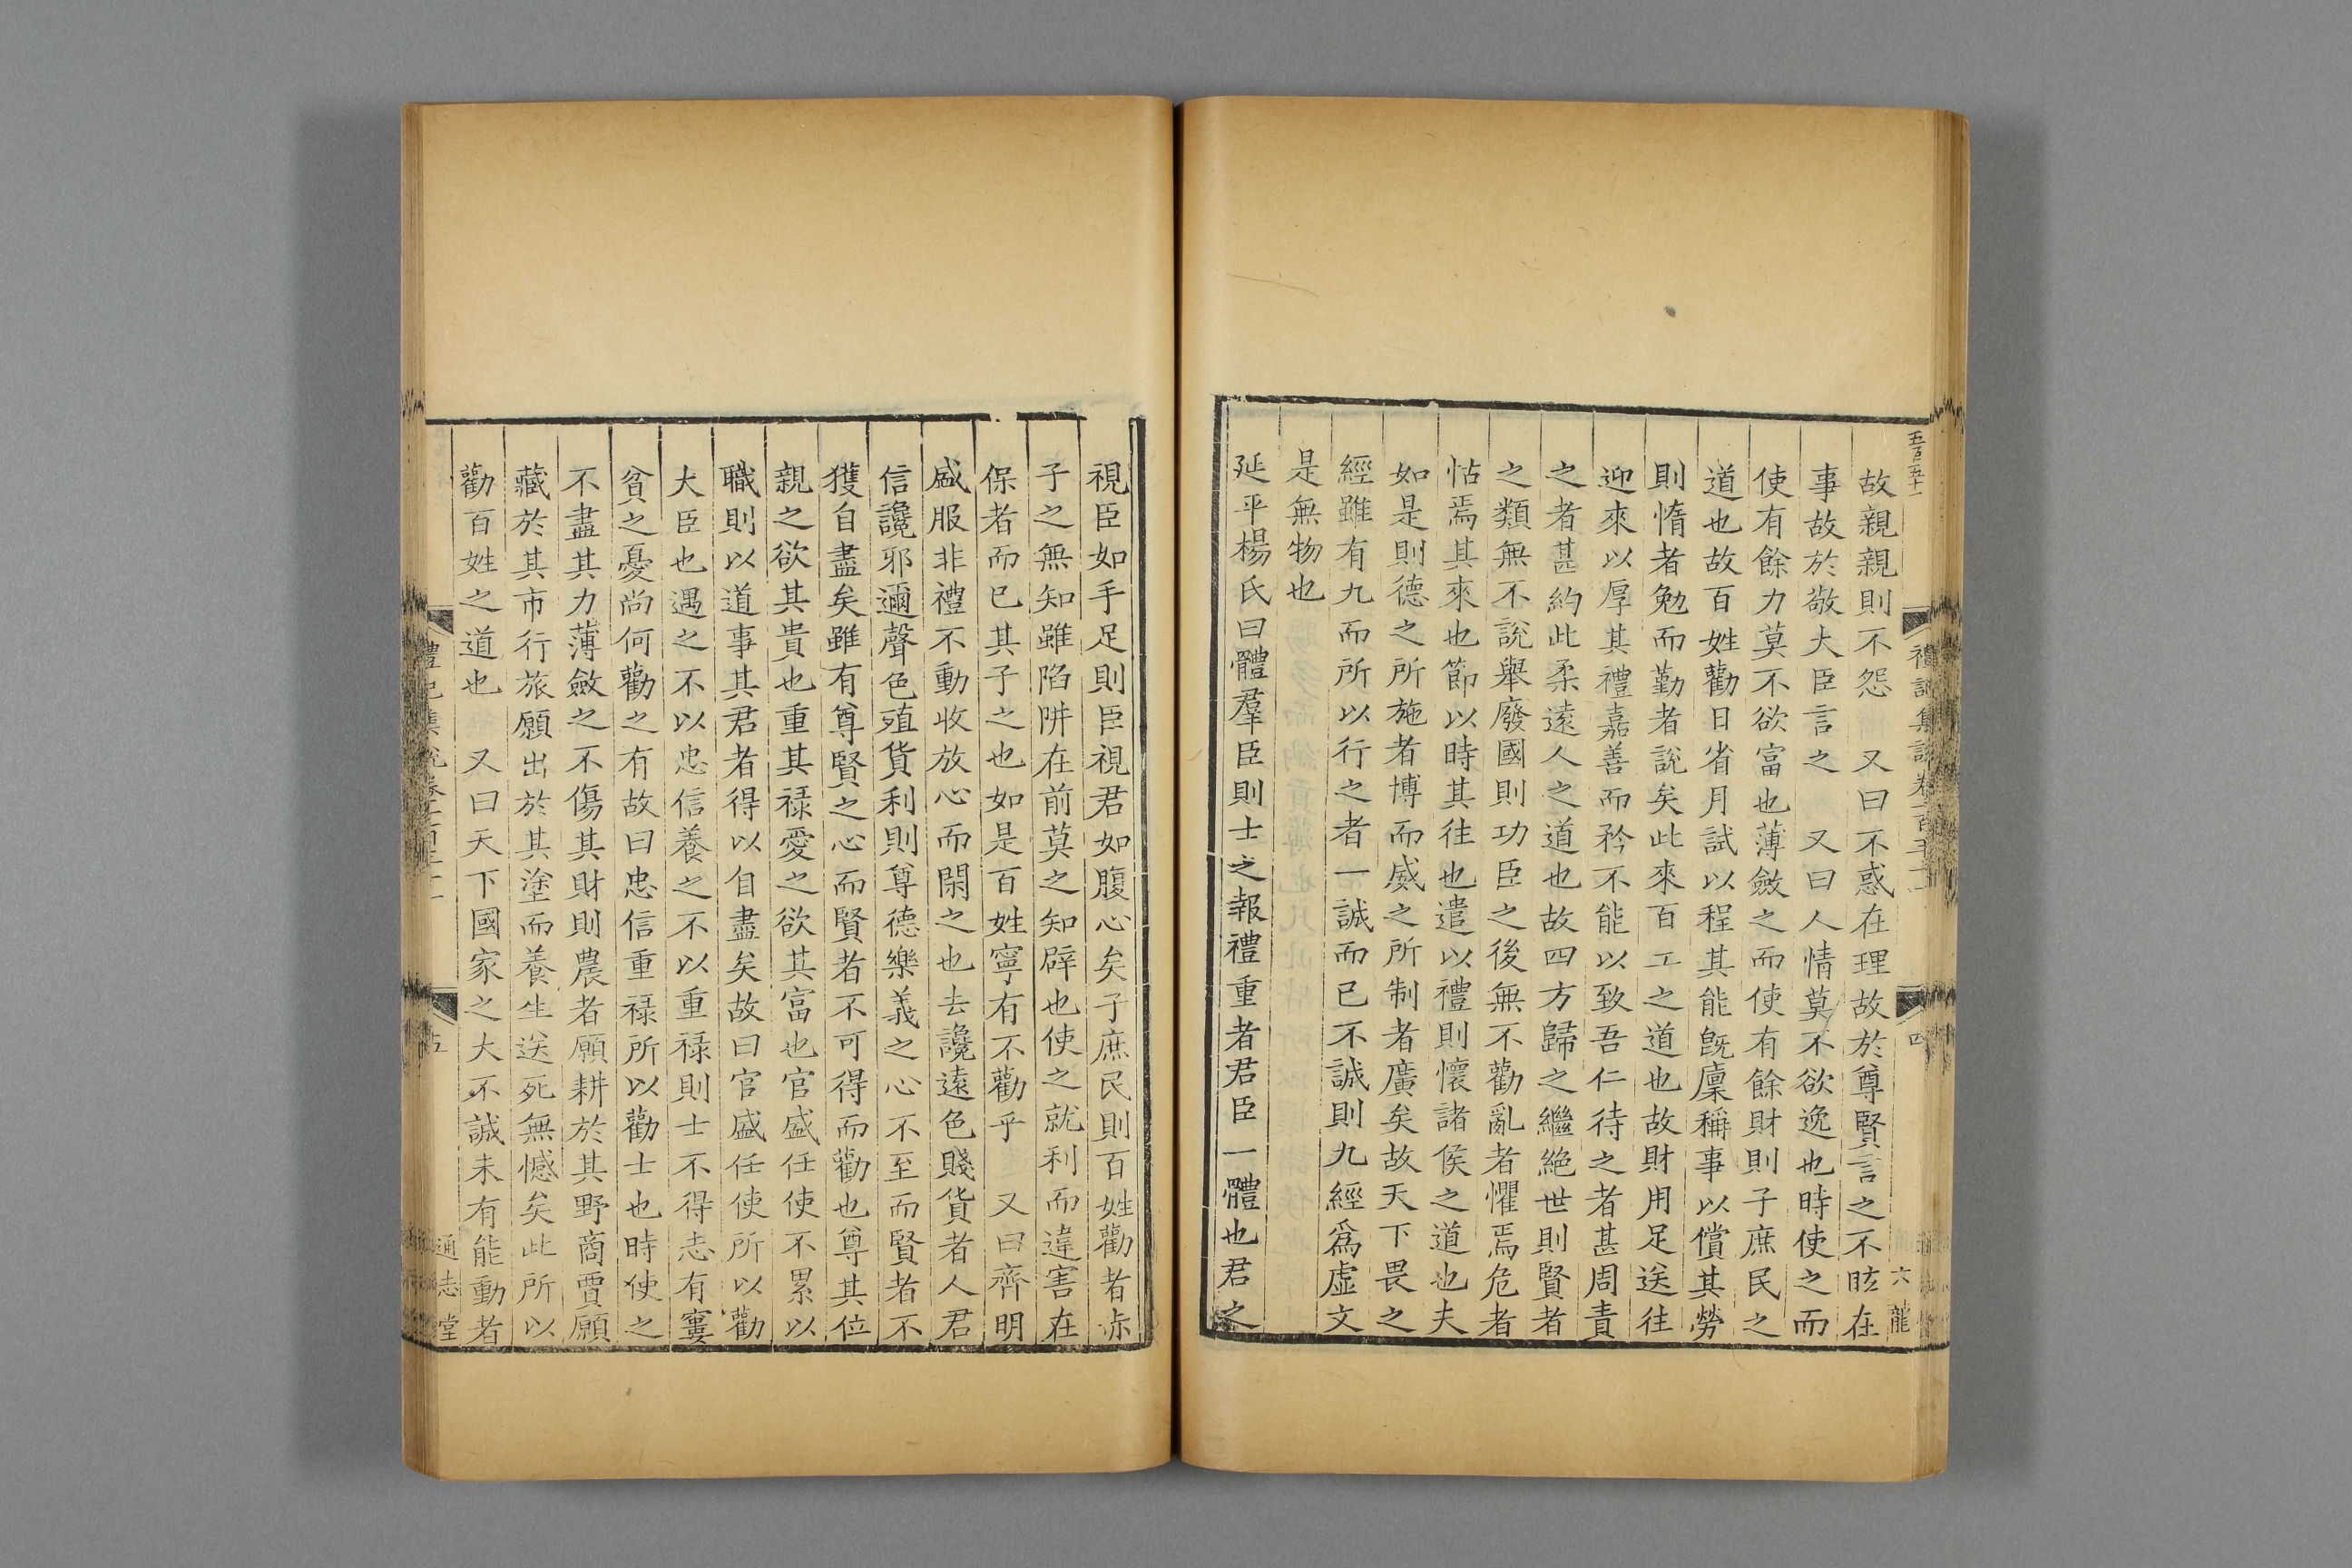 故親親則不怨　又曰不惑在理故於尊賢言之不眩在
事故於敬大臣言之　又曰人情莫不欲逸也時使之而
使有餘力莫不欲富也薄斂之而使有餘財則子庶民之
道也故百姓勸日省月試以程其能旣廩稱事以償其勞
則惰者勉而勤者說矣此來百工之道也故財用足送往
迎來以厚其禮嘉善而矜不能以致吾仁待之者甚周責
之者甚約此柔遠人之道也故四方歸之繼絕世則賢者
之類無不說舉廢國則功臣之後無不勸亂者懼焉危者
怙焉其來也節以時其往也遣以禮則懷諸侯之道也夫
如是則德之所施者博而威之所制者廣矣故天下畏之
經雖有九而所以行之者一誠而已不誠則九經爲虛文
是無物也
延平楊氏曰體羣臣則士之報禮重者君臣一體也君之
五百五十一
禮記集說卷一百三十一
四
六龍
視臣如手足則臣視君如腹心矣子庶民則百姓勸者赤
子之無知雖陷阱在前莫之知辟也使之就利而違害在
保者而已其子之也如是百姓寧有不勸乎　又曰齊明
盛服非禮不動收放心而閑之也去讒遠色賤貨者人君
信讒邪邇聲色殖貨利則尊德樂義之心不至而賢者不
獲自盡矣雖有尊賢之心而賢者不可得而勸也尊其位
親之欲其貴也重其祿愛之欲其富也官盛任使不累以
職則以道事其君者得以自盡矣故曰官盛任使所以勸
大臣也遇之不以忠信養之不以重祿則士不得志有窶
貧之憂尚何勸之有故曰忠信重祿所以勸士也時使之
不盡其力薄斂之不傷其財則農者願耕於其野商賈願
藏於其市行旅願出於其塗而養生送死無憾矣此所以
勸百姓之道也　又曰天下國家之大不誠未有能動者
禮記集說卷一百三十一
五
通志堂